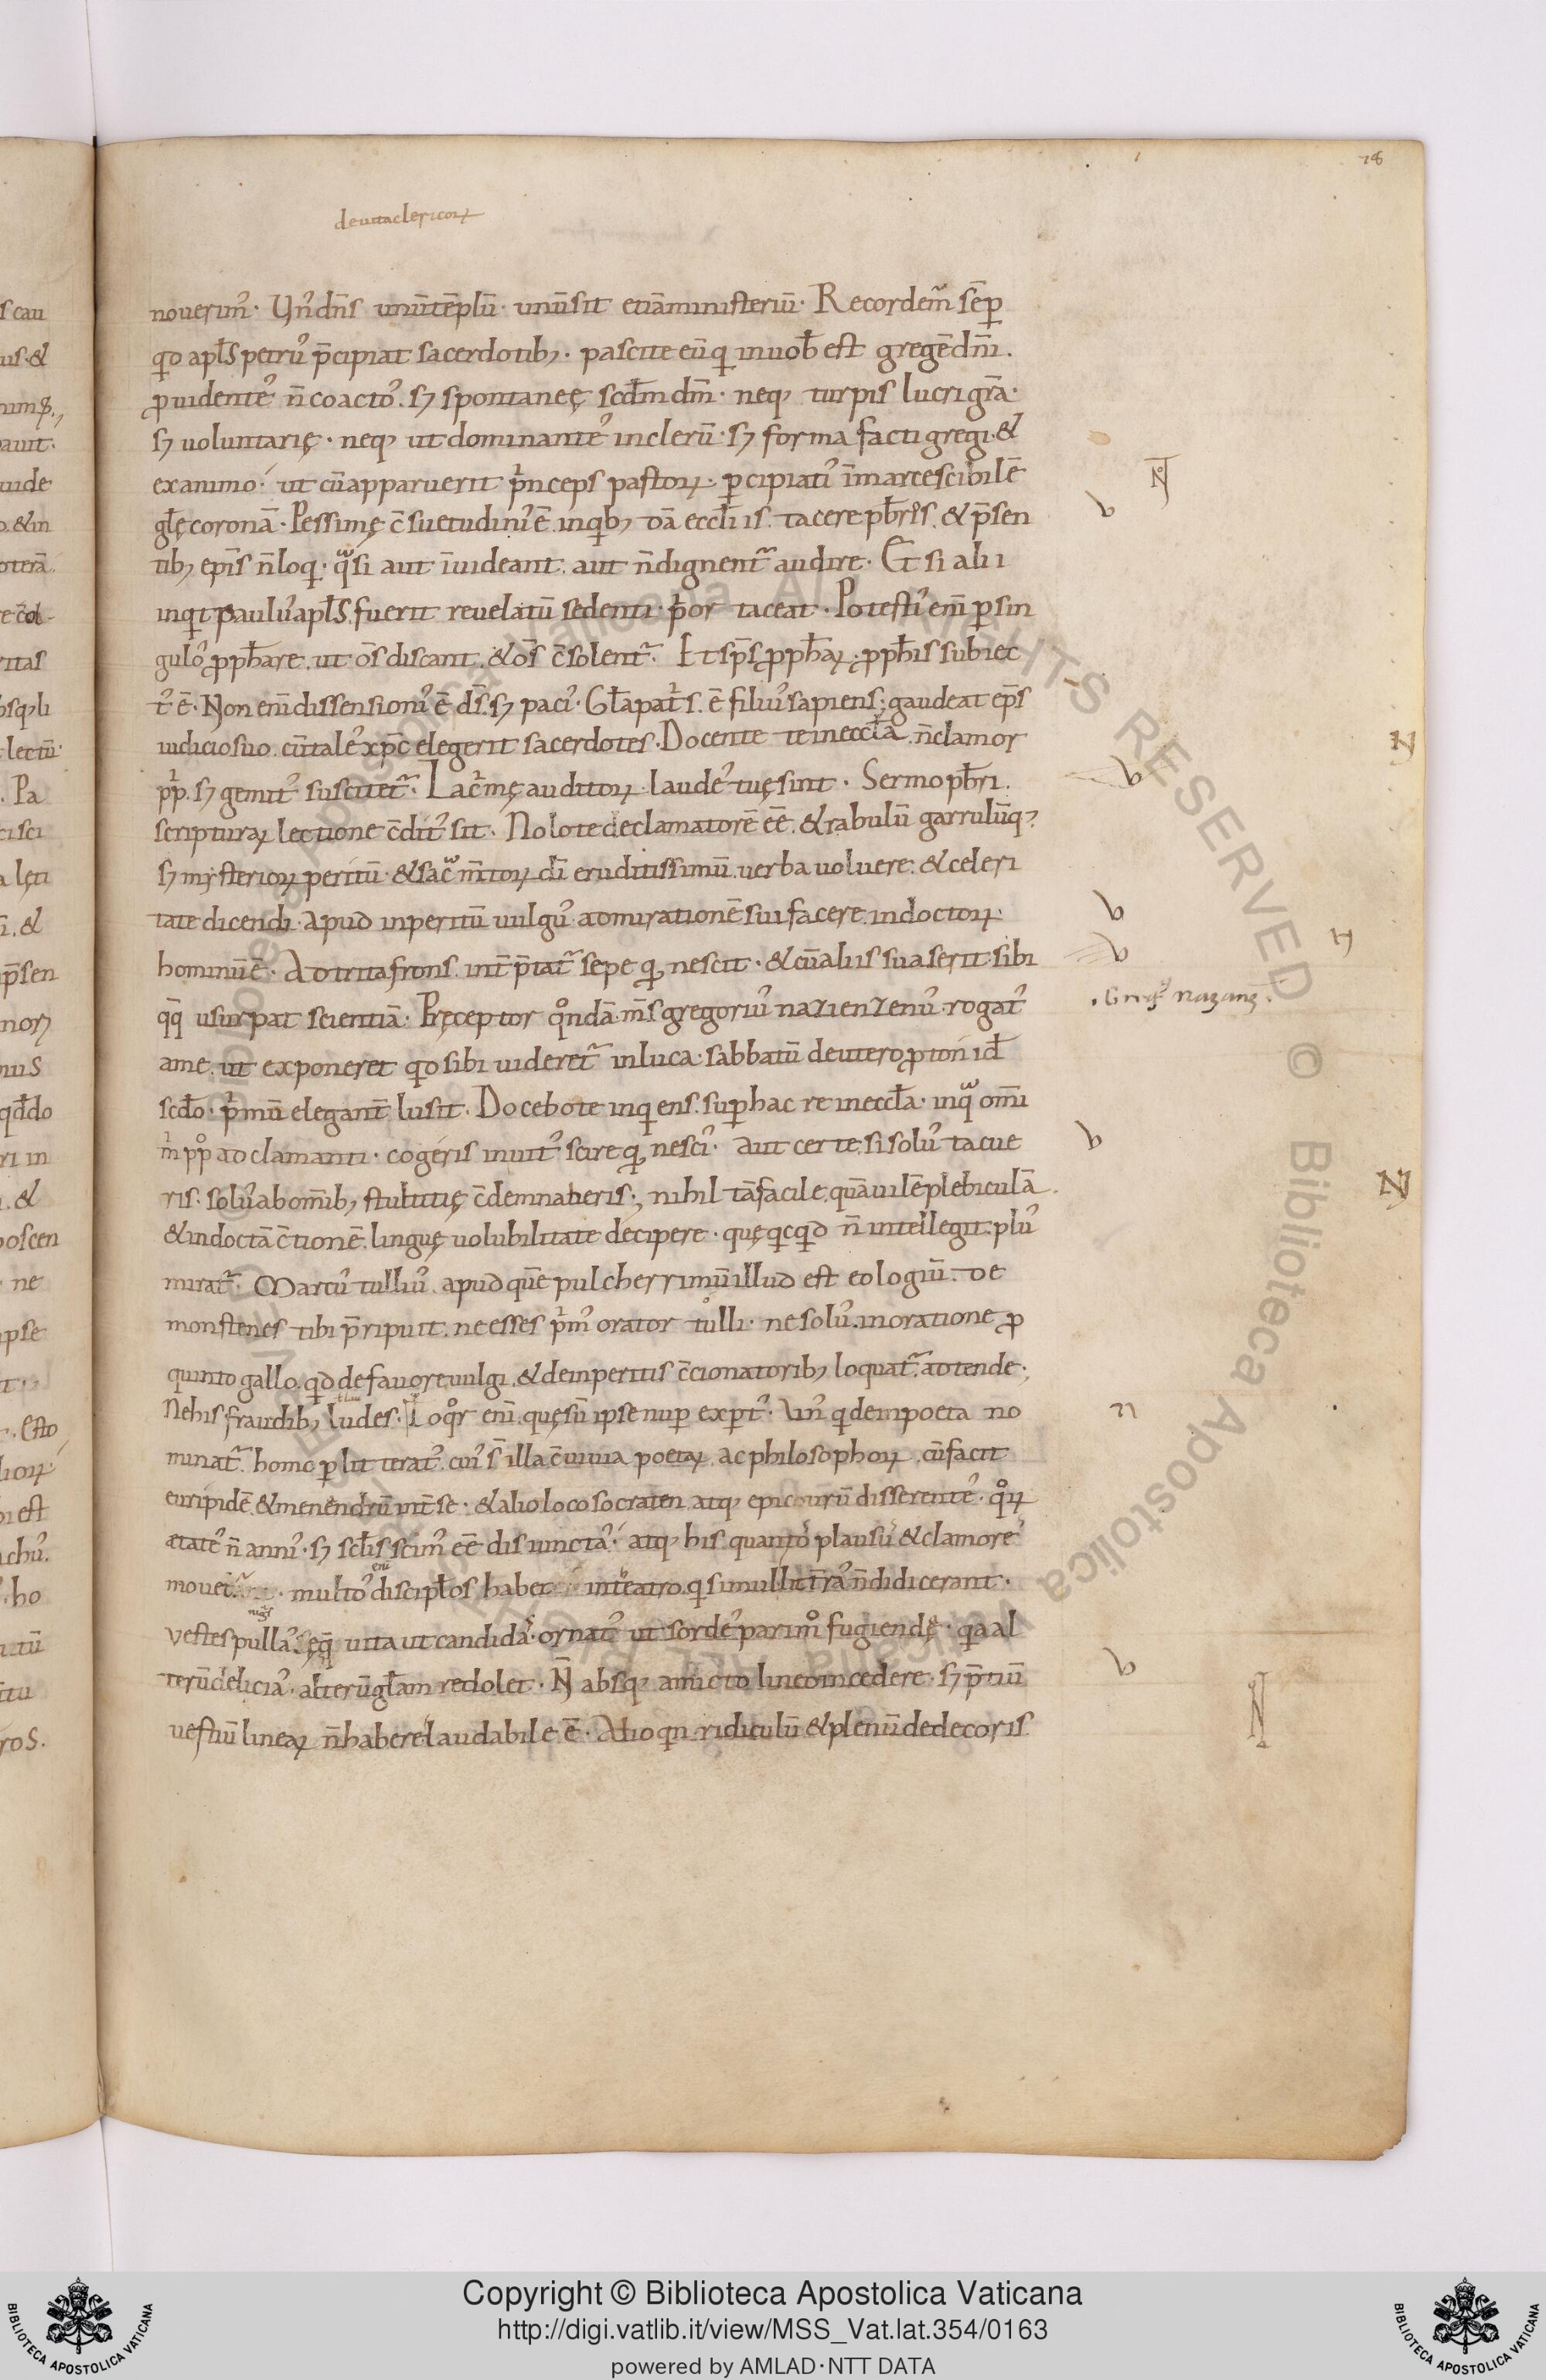 78
de uita clericoꝝ
nouerim᾿. Un᾿ dn̄s unū tēplū. unū sit etiā ministeriū. Recordem᷑ sēp
qđ apl̄s petrus᾿ p̄cipiat sacerdotib;. pascite eū q̄ in uob̄ est gregē dn̄i.
ꝓuidentes᾿ n̄ coacto᾿. sꝫ spontaneę scd̄m dm̄. neq; turpis lucri gr̄a.
sꝫ uoluntarię. neq; ut dominante᾿ in clerū. sꝫ forma facti gregi. &
ex animo. ut cū apparuerit p̍nceps pastoꝝ. ꝑcipiati᾿ īmarcescibilē
gl̄ę coronā. Pessimę c̄suetudini᾿ ē. in qb; dā eccl̄iis. tacere pb̄rōs. & p̄sen
tib; ep̄is n̄ loq̄. q̄si aut īuideant. aut n̄ dignent᷑ audire. Et si alii
inq̄t paulu᾿ apl̄s. fuerit reuelatū sedenti. p̍or taceat. Potesti᾿ em̄ ꝑ sin
gulo᾿ ꝓph̄are. ut om̄s discant. & om̄s c̄solent᷑. Et sp̄s ꝓph̄aꝝ. ꝓph̄is subiec
t᾿ ē. Non em̄ dissensioni᾿ ē ds̄. sꝫ paci᾿. Gl̄a pat̍s. ē filiu᾿ sapiens; gaudeat ep̄s
iudicio suo. cū tale᾿ xp̄c elegerit sacerdotes. Docente te in eccl̄a. n̄ clamor
p̍p. sꝫ gemit᾿ suscitet᷑. Lac̍mę auditoꝝ. laude᾿ tuę sint. Sermo pb̄ri.
scripturaꝝ lectione c̄dit᾿ sit. Nolo te declamatorē eē. & rabulū garrulūq;
sꝫ mysterioꝝ peritū. & sac̄m̄toꝝ dī eruditissimū. uerba uoluere. & celeri
tate dicendi. apud inperitū uulgu᾿ admirationē sui facere. indoctoꝝ
hominū ē. Adtrita frons. int̄p̄tat᷑ sepe qđ nescit. & cū aliis suaserit. sibi
qq̄ usurpat scientiā. Pręceptor q̊ndā m̄s gregoriu᾿ nazienzenu᾿. rogat᾿
a me. ut exponeret qđ sibi uideret᷑ in luca. sabbatū deuteroꝓton id̄
scđo. p̍mū elegant̄ lusit. Docebo te inq̄ens. suꝑ hac re in eccl̄a. in q̄ om̄i
m̍ pp̊ adclamanti. cogeris inuit᾿ scire qđ nesci᾿. Aut certe si solu᾿ tacue
ris. solu᾿ ab om̄ib; stultitię c̄demnaberis; nihil tā facile, quā uilē plebiculā
& indoctā c̄tionē. linguę uolubilitate decipere. quę qcqđ n̄ intellegit. plu᾿
mirat᷑. Marcu᾿ tulliu᾿. apud quē pulcherrimū illud est eologiū. de
monstenes tibi p̄ripuit. ne esses p̍m᾿ orator. tulli. ne solu᾿. in oratione ꝓ
quinto gallo. qđ de fauore uulgi. & de inperitis c̄cionatorib; loquat᷑. adtende.
Ne his fraudib; ludes. Loq̊r em̄. quę sū ipse nuꝑ expt᾿. Un᾿ quidem poeta no
minat᷑. homo ꝑlitterat᾿. cui᾿ s̄ illa c̄uiuia poetaꝝ. ac philosophoꝝ. cū facit
euripidē. & menendrū int̄ se. & alio loco socraten. atq; epicurū disserente᾿. q̊ꝝ
ætate᾿ n̄ anni᾿. sꝫ scl̄is scim᾿ eē disiuncta᾿. atq; his. quanto᾿ plausu᾿ & clamore᾿
mouet. multo᾿ enī discipl̄os habet in teatro. q simul litt̄ra᾿ n̄ didicerant.
nig̍s
uestes pulla᾿. ęq̄ uita ut candida᾿. ornat᾿ ut sorde᾿ pari m̊ fugiendę. qa al
terū delicia᾿. alterū gl̄am redolet. N̄ absq; amicto lineo incedere. sꝫ p̄tiū
uestiū lineaꝝ n̄ habere laudabile ē. Alioqn. ridiculū & plenū dedecoris
Greg᾿ nazanz.
Copyright © Biblioteca Apostolica Vaticana
http://digi.vatlib.it/view/MSS_Vat.lat.354/0163
powered by AMLAD·NTT DATA
BIBLIOTECA APOSTOLICA VATICANA
BIBLIOTECA APOSTOLICA VATICANA